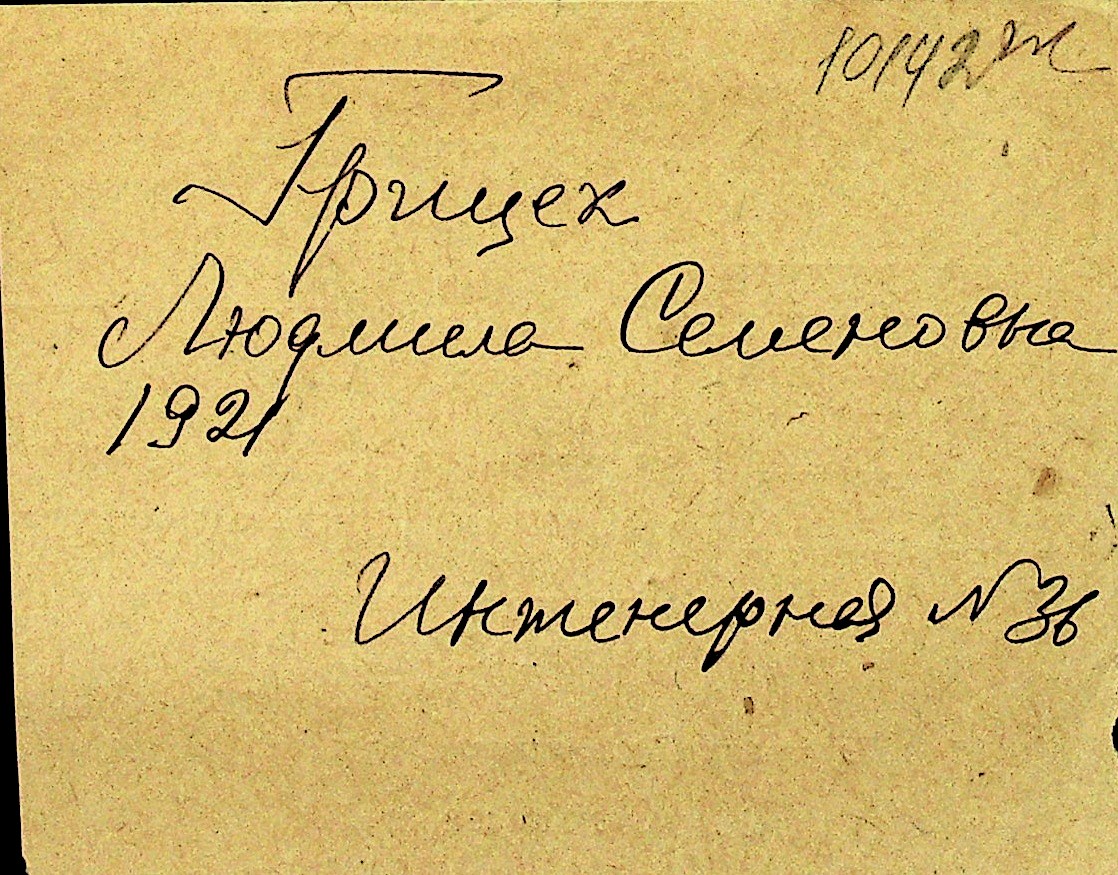 10142 ж
Грицек
Людмила Семеновна
1921
Инженерная № 36